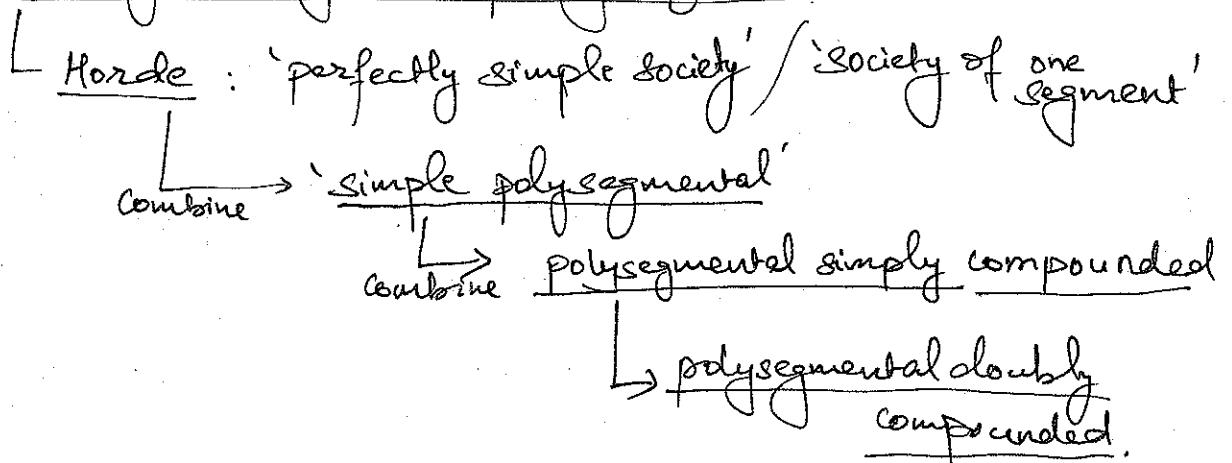 Horde : 'perfectly simple society' / 'society of one segment'
Combine → 'simple polysegmental'
Combine → polysegmental simply compounded
→ polysegmental doubly
compounded.